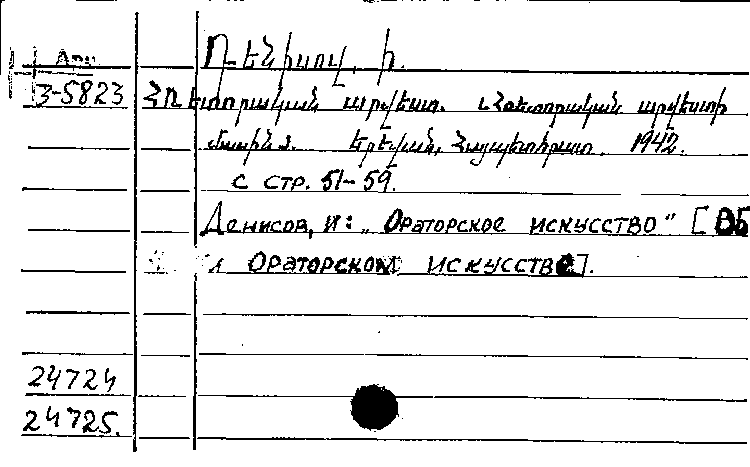 Арм
3-5823
Դենիսով, Ի.
Հռետորական արվեստ. «Հռետորական արվեստի
մասին». Երևան, Հայպետհրատ, 1942.
с стр. 51-59.
Денисов, И: „Ораторское искусство" [Об
Ораторском искусстве].
24724
24725.